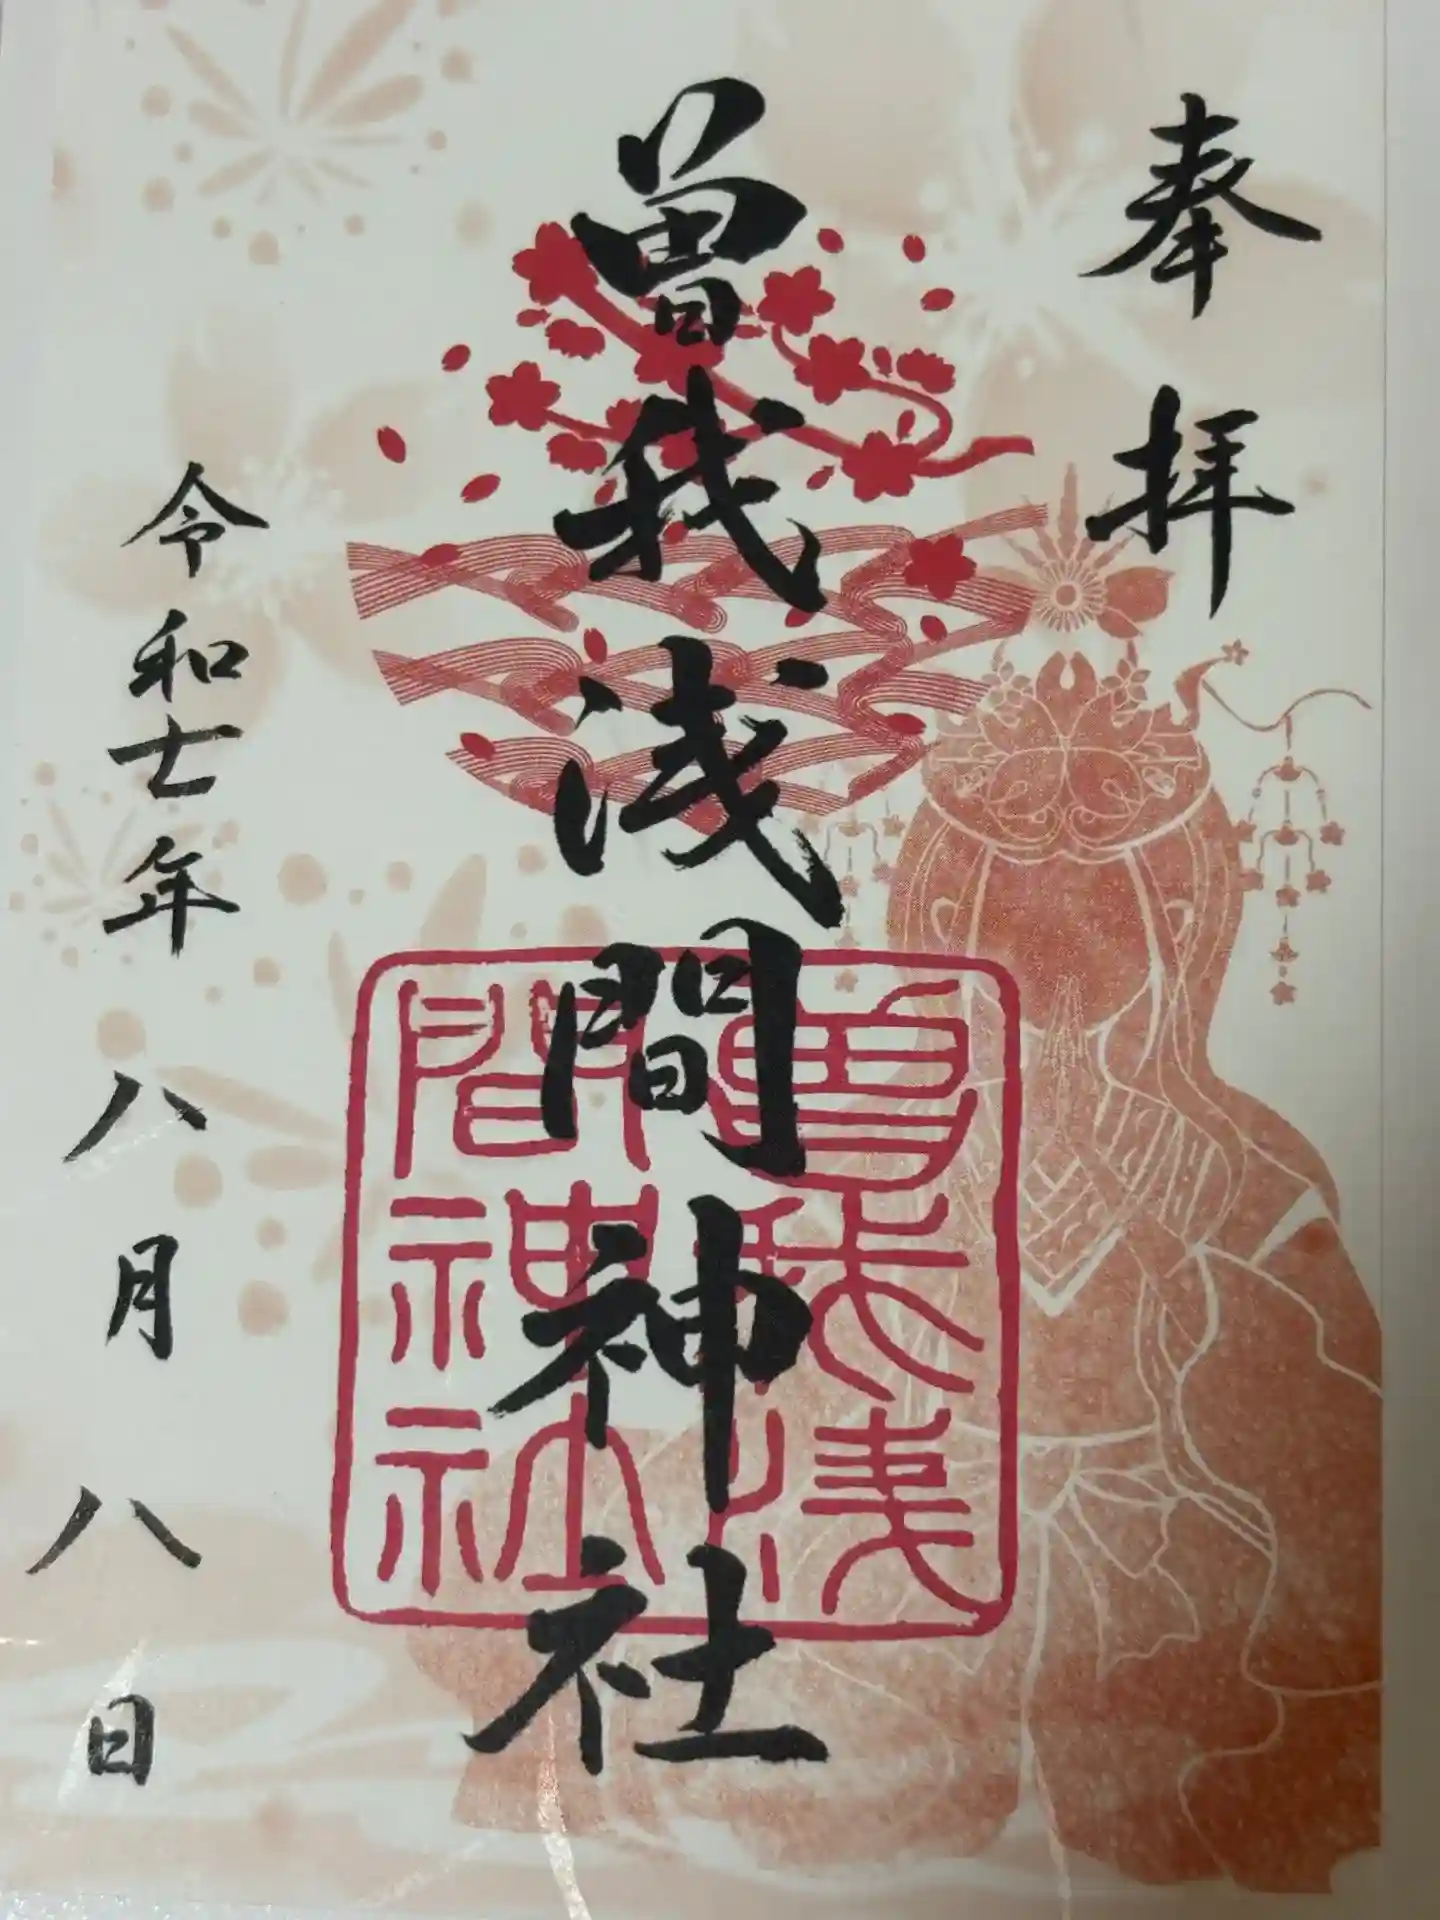 奉拝
曽我浅間神社
曽我浅
間神社
令和七年八月八日